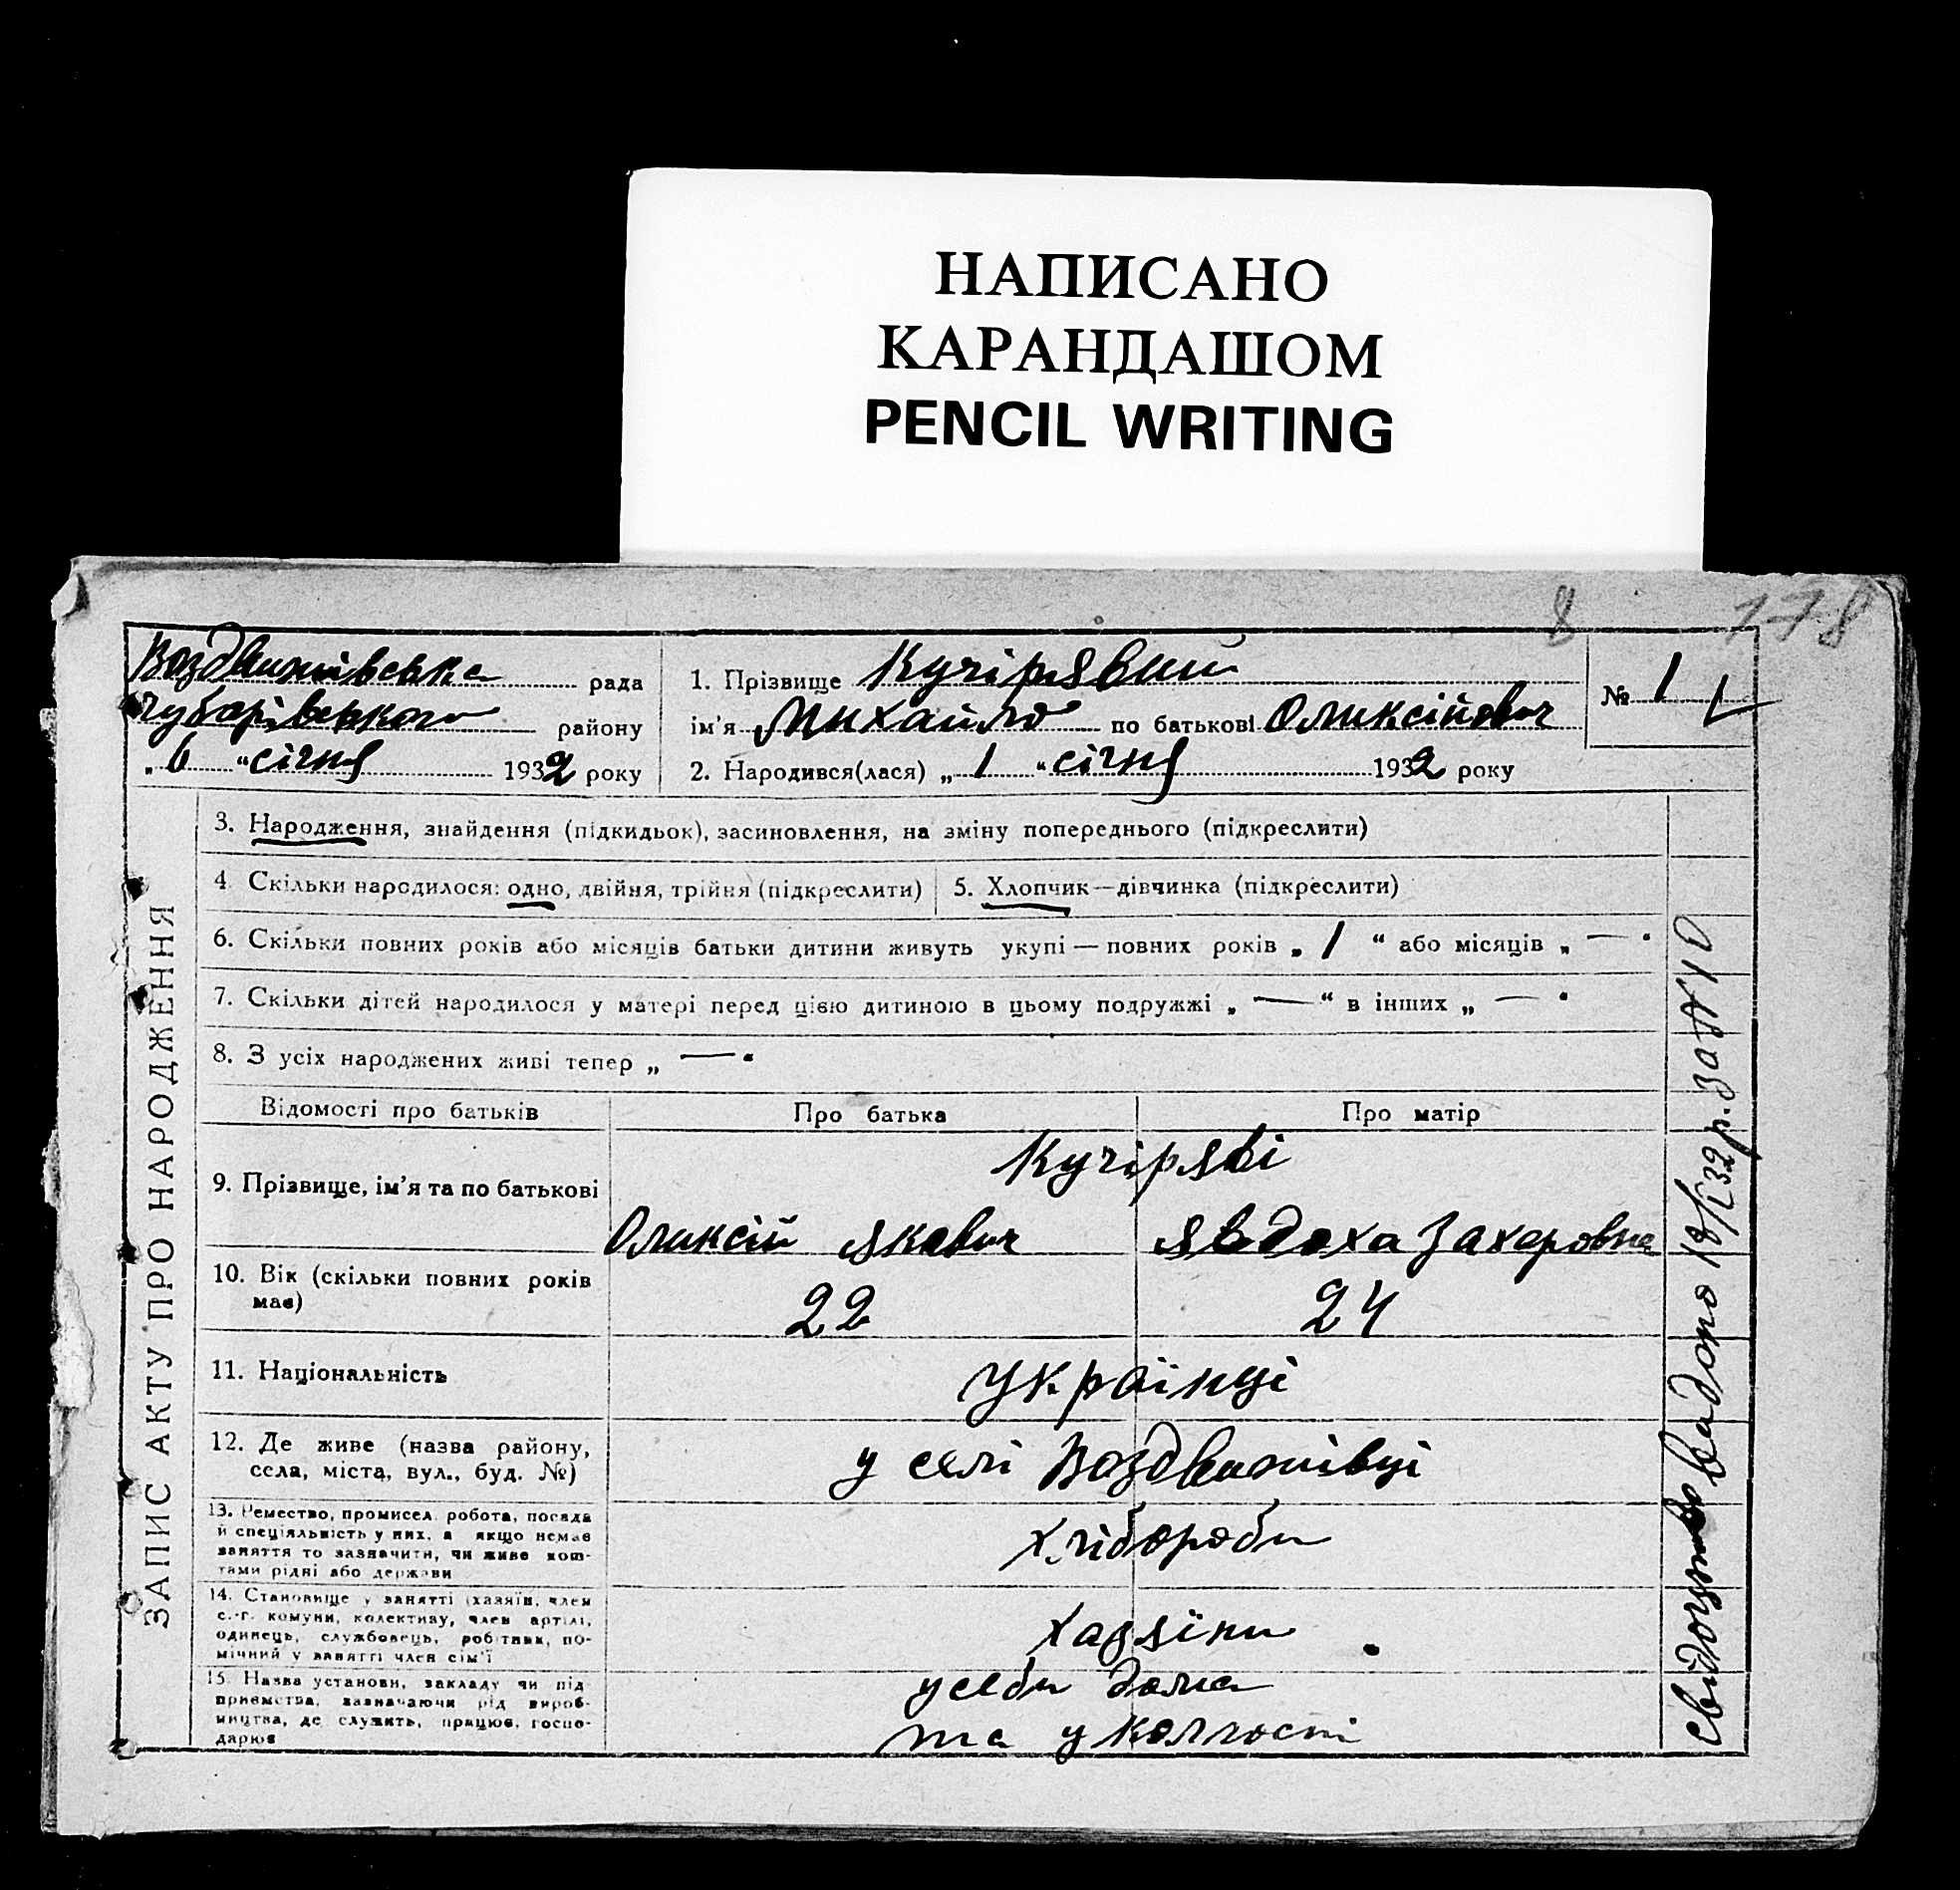 НАПИСАНО
КАРАНДАШОМ
PENCIL WRITING
8 178
Воздвижівська рада
Чубарівського району
„6“ січня 1932 року
1. Прізвище Кучірявий
ім'я Михайло по батькові Оликсійович
2. Народився(лася) „1“ січня 1932 року
№ 1
ЗАПИС АКТУ ПРО НАРОДЖЕННЯ
3. Народження, знайдення (підкидьок), засиновлення, на зміну попереднього (підкреслити)
4. Скільки народилося: одно, двійня, трійня (підкреслити)
5. Хлопчик—дівчинка (підкреслити)
6. Скільки повних років або місяців батьки дитини живуть укупі — повних років „1“ або місяців „—“
7. Скільки дітей народилося у матері перед цією дитиною в цьому подружжі „—“ в інших „—“
8. З усіх народжених живі тепер „—“
Відомості про батьків Про батька Про матір
9. Прізвище, ім'я та по батькові
Кучіряві
Оликсій Якович Явдоха Захаровна
10. Вік (скільки повних років
має)
22 24
11. Національність
Українці
12. Де живе (назва району,
села, міста, вул., буд. №)
у селі Воздвижівці
13. Ремество, промисел, робота, посада
й спеціяльність у них, а якщо немає
заняття то зазначити, чи живе кош-
тами рідні або держави
Хлібороби
14. Становище у занятті (хазяїн, член
с.-г. комуни, колективу, член артілі,
одинець, службовець, робітник, по-
мічний у занятті член сім'ї
Хазяїни
15. Назва установи, закладу чи під
приємства, зазначаючи рід вироб-
ництва, де служить, працює, госпо-
дарює
у себи дома
та у колгоспі
свідоцтво видано 18/I 32 р. за №